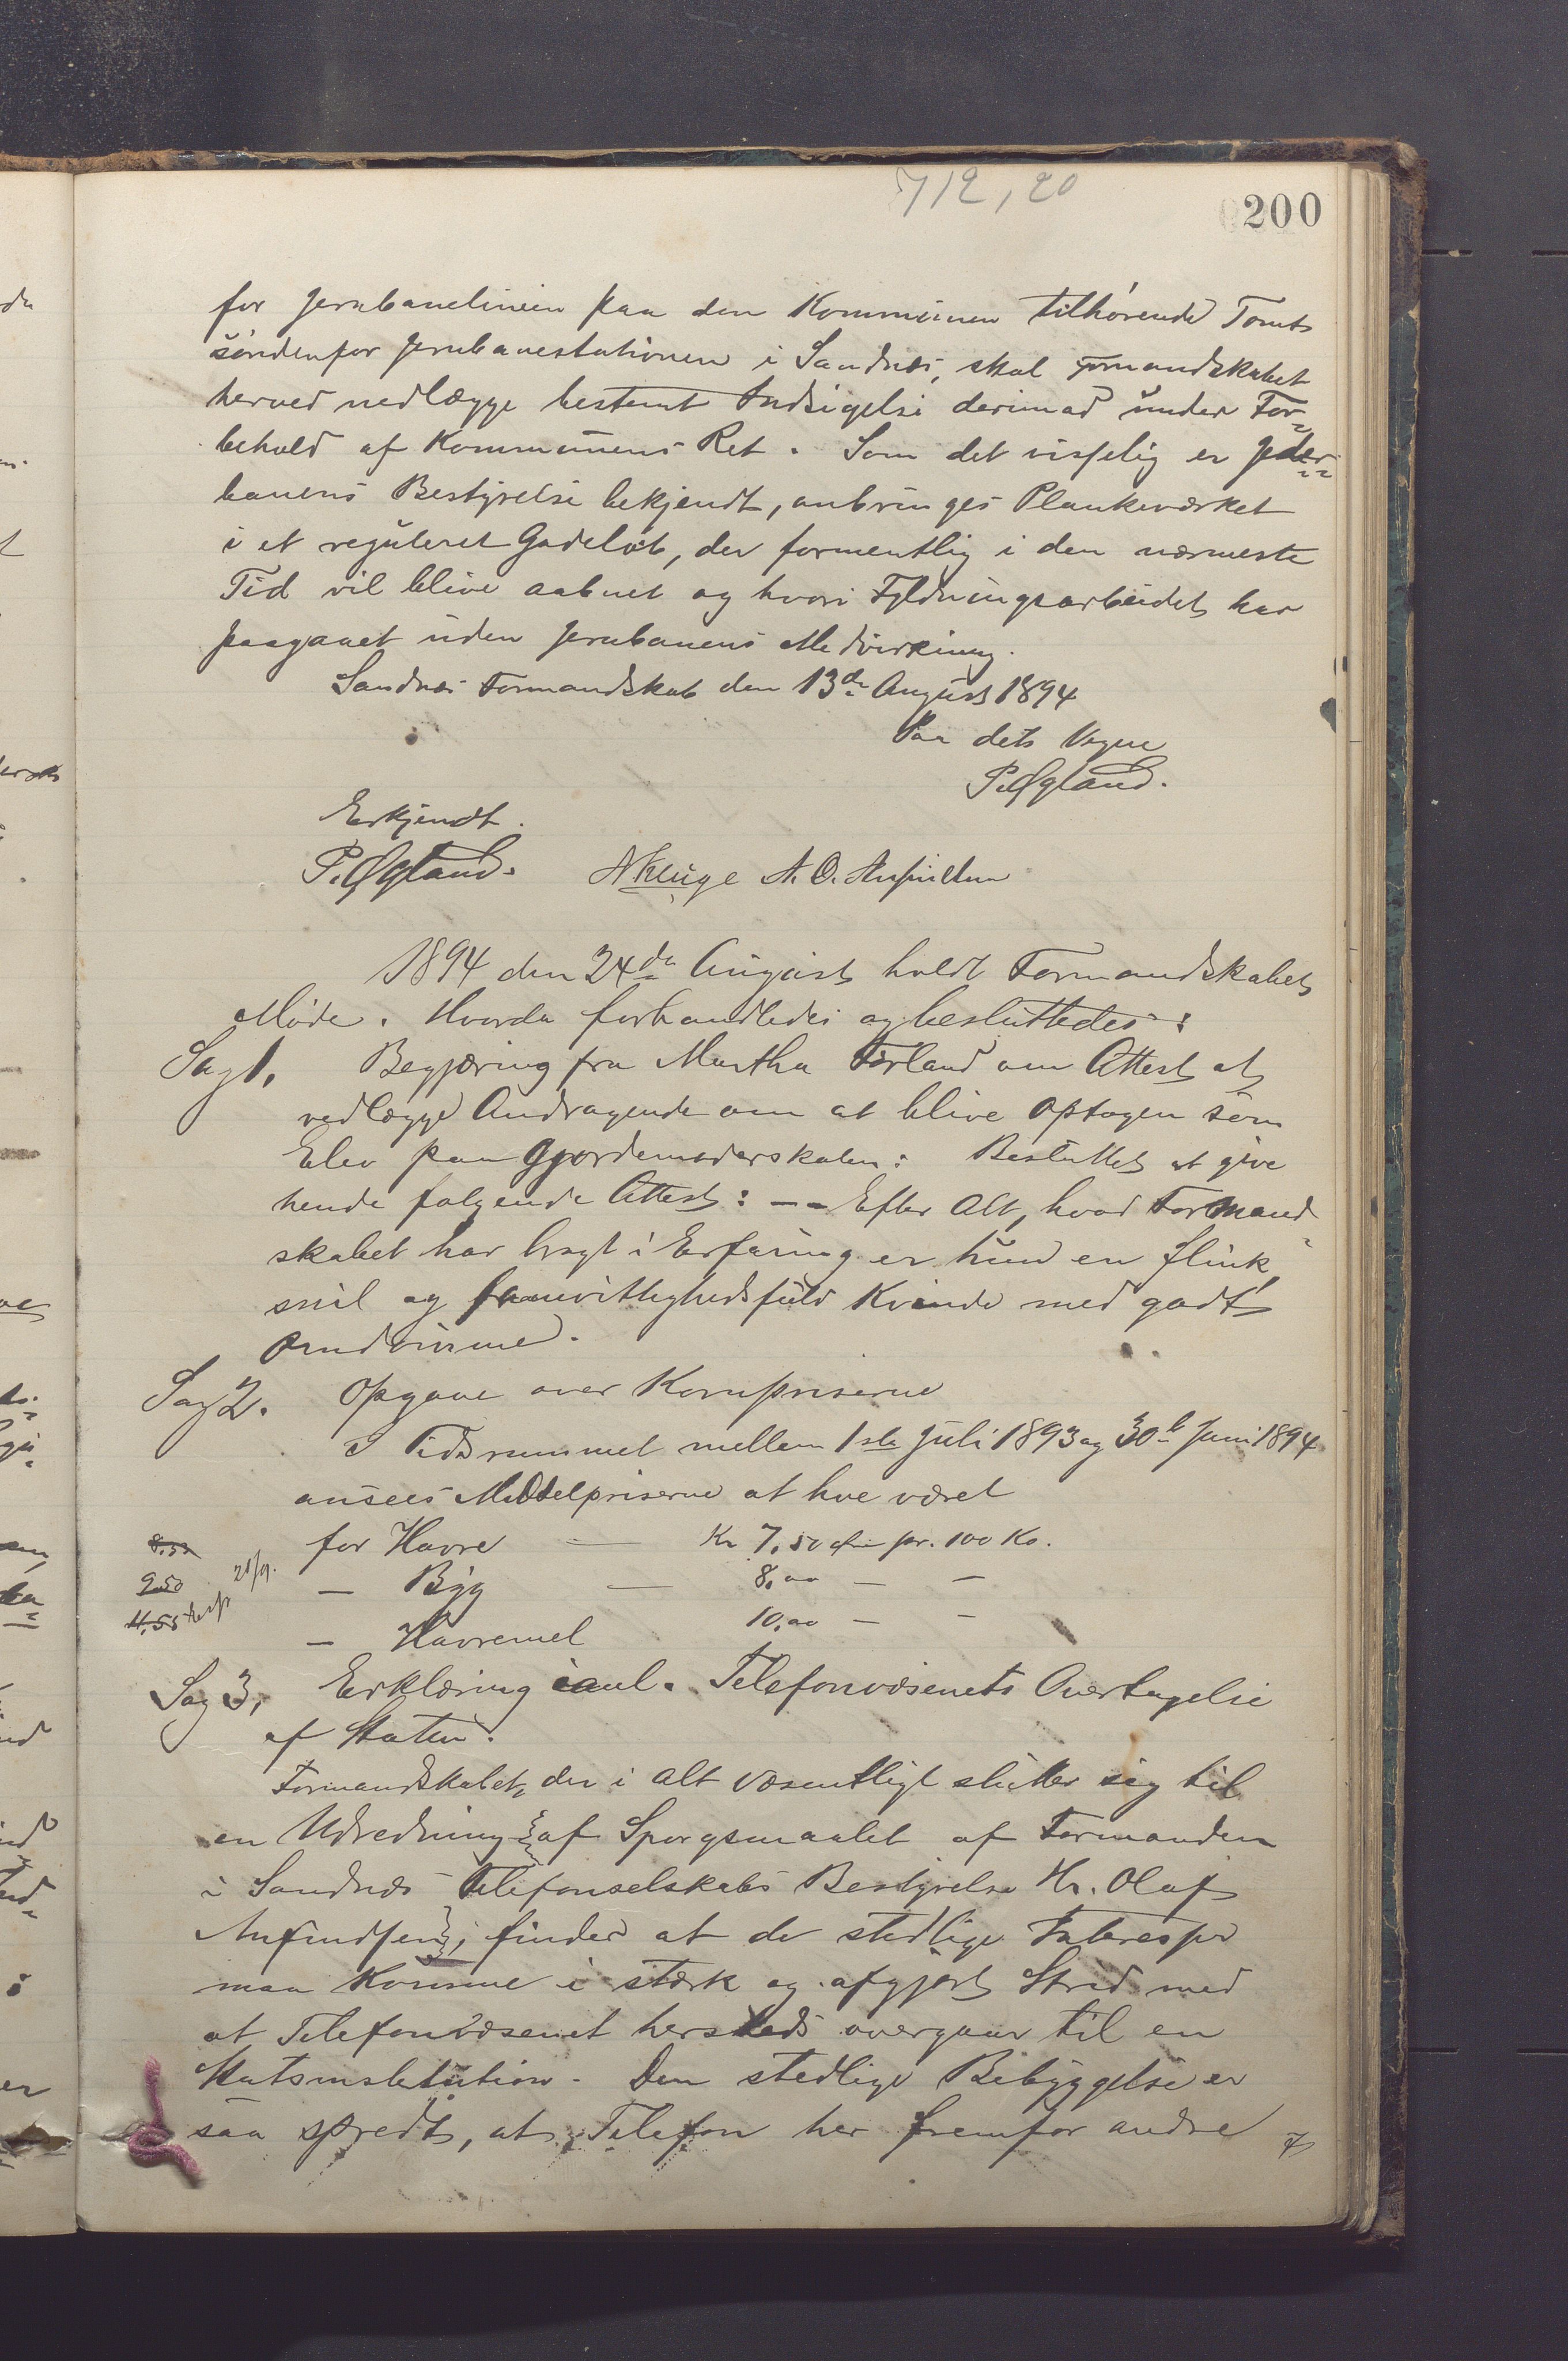 712,20
200
for Jernbanelinien paa den Kommunen tilhørende Tomt
søndenfor Jernbanestationen i Sandnæs, skal Formandskabet
herved nedlægge bestemt Indsigelse derimod under For-
behold af Kommunens Ret. Som det visselig er Jern-
banens Bestyrelse bekjendt, anbringes Plankeværket
i et reguleret Gadeløb, der formentlig i den nærmeste
Tid vil blive aabnet og hvori Fyldningsarbeidet har
paagaaet uden Jernbanens Medvirkning.
Sandnæs Formandskab den 13de August 1894
Paa dets Vegne
P. Øgland.
Erkjendt.
P. Øgland. A Kluge A. O.
1894 den 24de August holdt Formandskabet
Møde. Hvorda forhandledes og besluttedes:
Sag 1. Begjæring fra Martha Førland om Attest at
vedlægge Andragende om at blive optagen som
Elev paa Gjordemoderskolen: Besluttet at give
hende følgende Attest: -- Efter Alt, hvad Formand-
skabet har bragt i Erfaring er hun en flink,
snil og samvittighedsfuld Kvinde med godt
Omdømme.
Sag 2. Opgave over Kornpriserne
I Tidsrummet mellem 1ste Juli 1893 og 30te Juni 1894
ansees Middelpriserne at have været
8.50 for Havre — Kr 7,50 pr. 100 Ko.
9.50 21/9. — Byg — 8,00 — —
11.55 — Havremel 10,00 — —
Sag 3, Erklæring anl. Telefonvæsenets Overtagelse
af Staten.
Formandskabet, der i alt væsentligt slutter sig til
en Udredning af Spørgsmaalet af Formanden
i Sandnæs Telefonselskabs Bestyrelse Hr. Olaf
Anfindsen, finder at de stedlige Interesser
maa komme i stærk og afgjort Strid med
at Telefonvæsenet hersteds overgaar til en
Statsinstitution. Den stedlige Bebyggelse er
saa spredt, at Telefon her fremfor andre